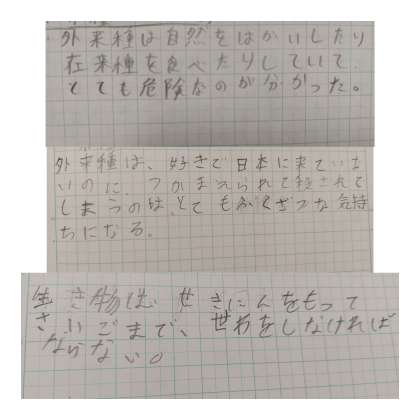 外来種は自然をはかいしたり
在来種を食べたりしていて
とても危険なのが分かった。
外来種は、好きで日本に来ていな
いのに、つかまえられて殺されて
しまうのは、とてもふくざつな気持
ちになる。
生き物は、せきにんをもって
さいごまで、せわをしなければ
ならない。